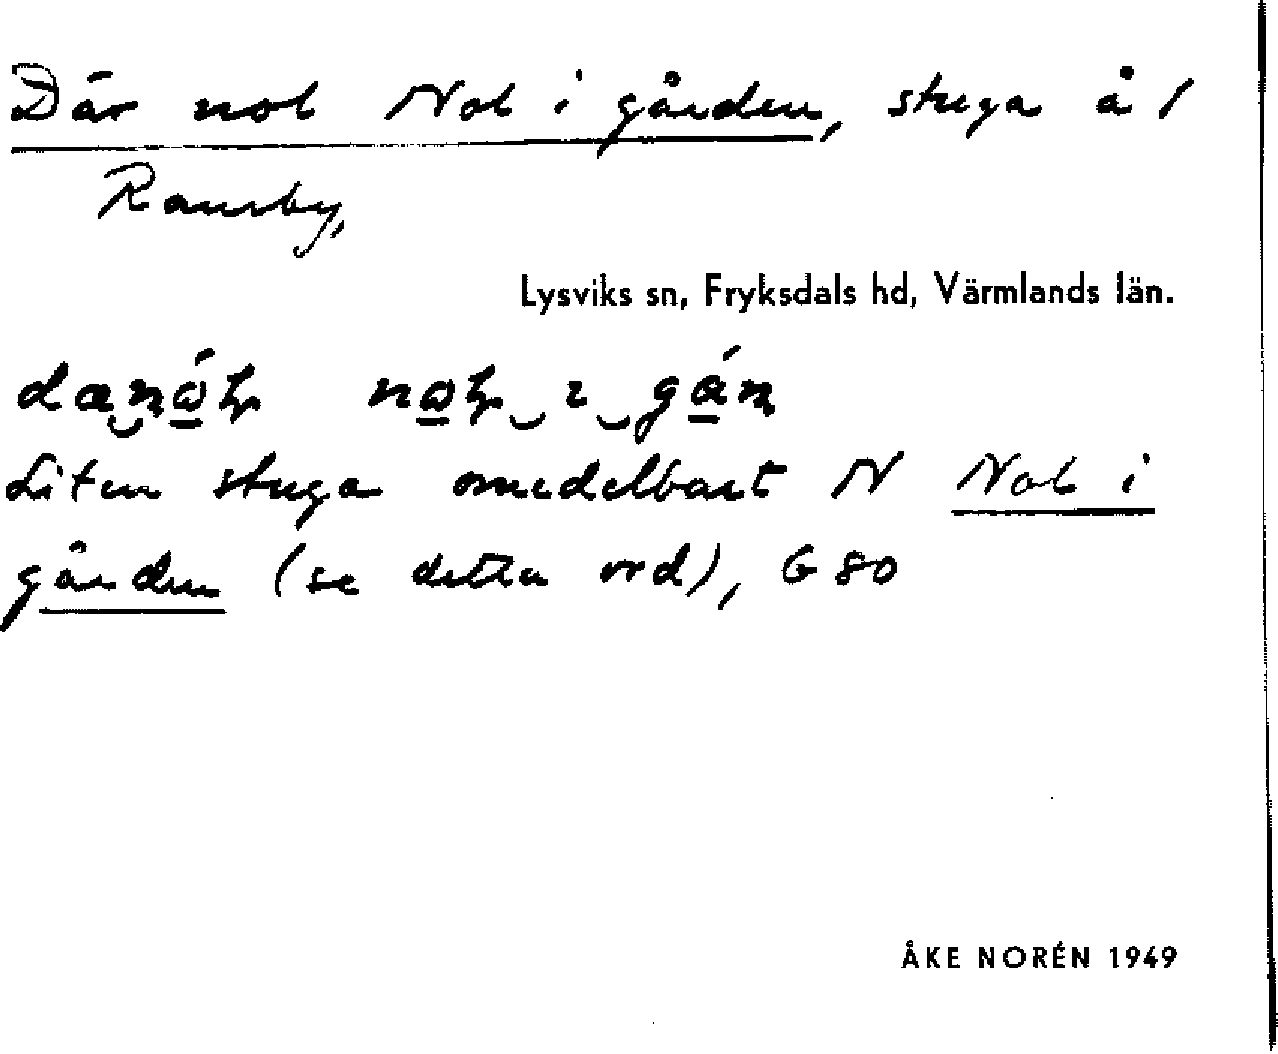 Där nol Nol i gården, stuga å 1
Ransby,
Lysviks sn, Fryksdals hd, Värmlands län.
Liten stuga omedelbart N Nol i
gården (se detta ord), G 80
ÅKE NORÉN 1949